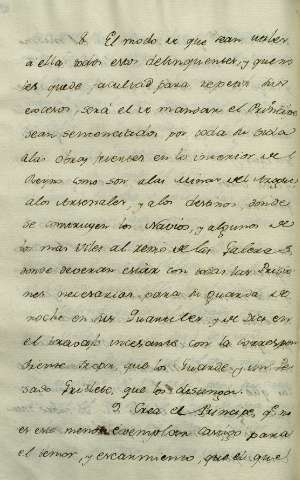 8. El modo de que sean utiles
a ella todos esos delinquentes, y que no
les quede facultad para repetir sus
excesos, será el de mandar el Principe
sean sentenciados por toda su vida
a las obras fuertes en lo interior de el
Reyno como son a las Minas del Azogue
a los Arsenales, y a los destinos donde
se construyen los Navios, y algunos de
los mas viles al remo de las Galeras,
donde deveran estar con todas las Prisio
nes necesarias para su guarda de
noche en sus Quarteles, y de Dia en
el trabajo incesante con la correspon
diente tropa que los Guarde, y un Pe
sado Grillete, que los
9. Crea el Principe, q.e no
es este menos exemplar castigo para
el temor, y escarmiento, que el que